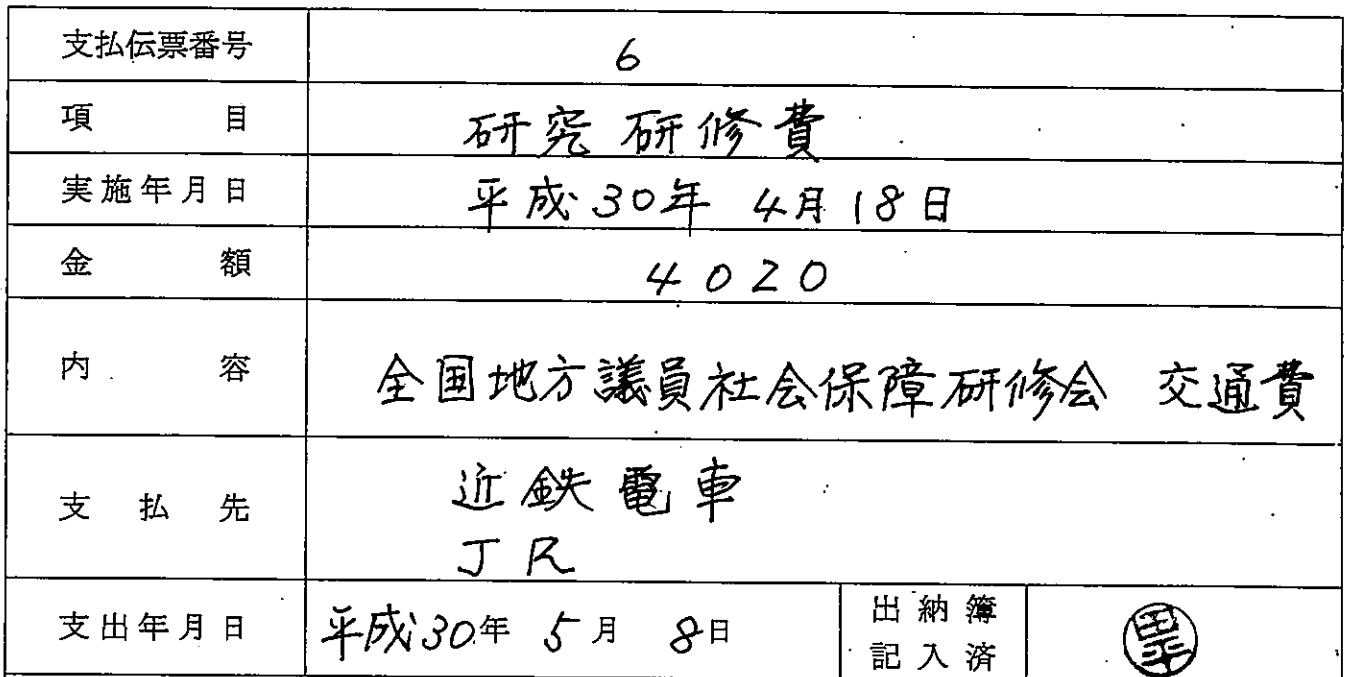 支払伝票番号 6
項目 研究研修費
実施年月日 平成30年 4月18日
金額 4020
内容 全国地方議員社会保障研修会 交通費
支払先 近鉄電車
JR
支出年月日 平成30年 5月 8日 出納簿
記入済